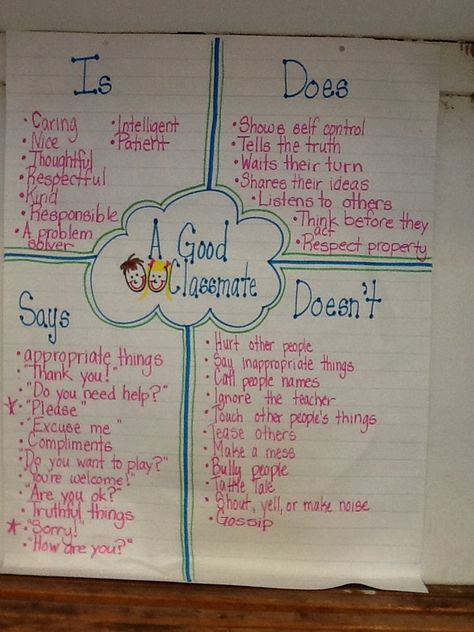 Is
• Caring
• Nice
• Thoughtful
• Respectful
• Kind
• Responsible
• A problem
solver
• Intelligent
• Patient
Does
• Shows self control
• Tells the truth
• Waits their turn
• Shares their ideas
• Listens to others
• Think before they
act
• Respect property
A Good
Classmate
Says
• appropriate things
• "Thank you!"
• "Do you need help?"
* • "Please"
• "Excuse me"
• Compliments
• "Do you want to play?"
• "You're welcome!"
• "Are you ok?"
• Truthful things
* • "Sorry!"
• "How are you?"
Doesn't
• Hurt other people
• Say inappropriate things
• Call people names
• Ignore the teacher
• Touch other people's things
• Tease others
• Make a mess
• Bully people
• Tattle Tale
• Shout, yell, or make noise
• Gossip